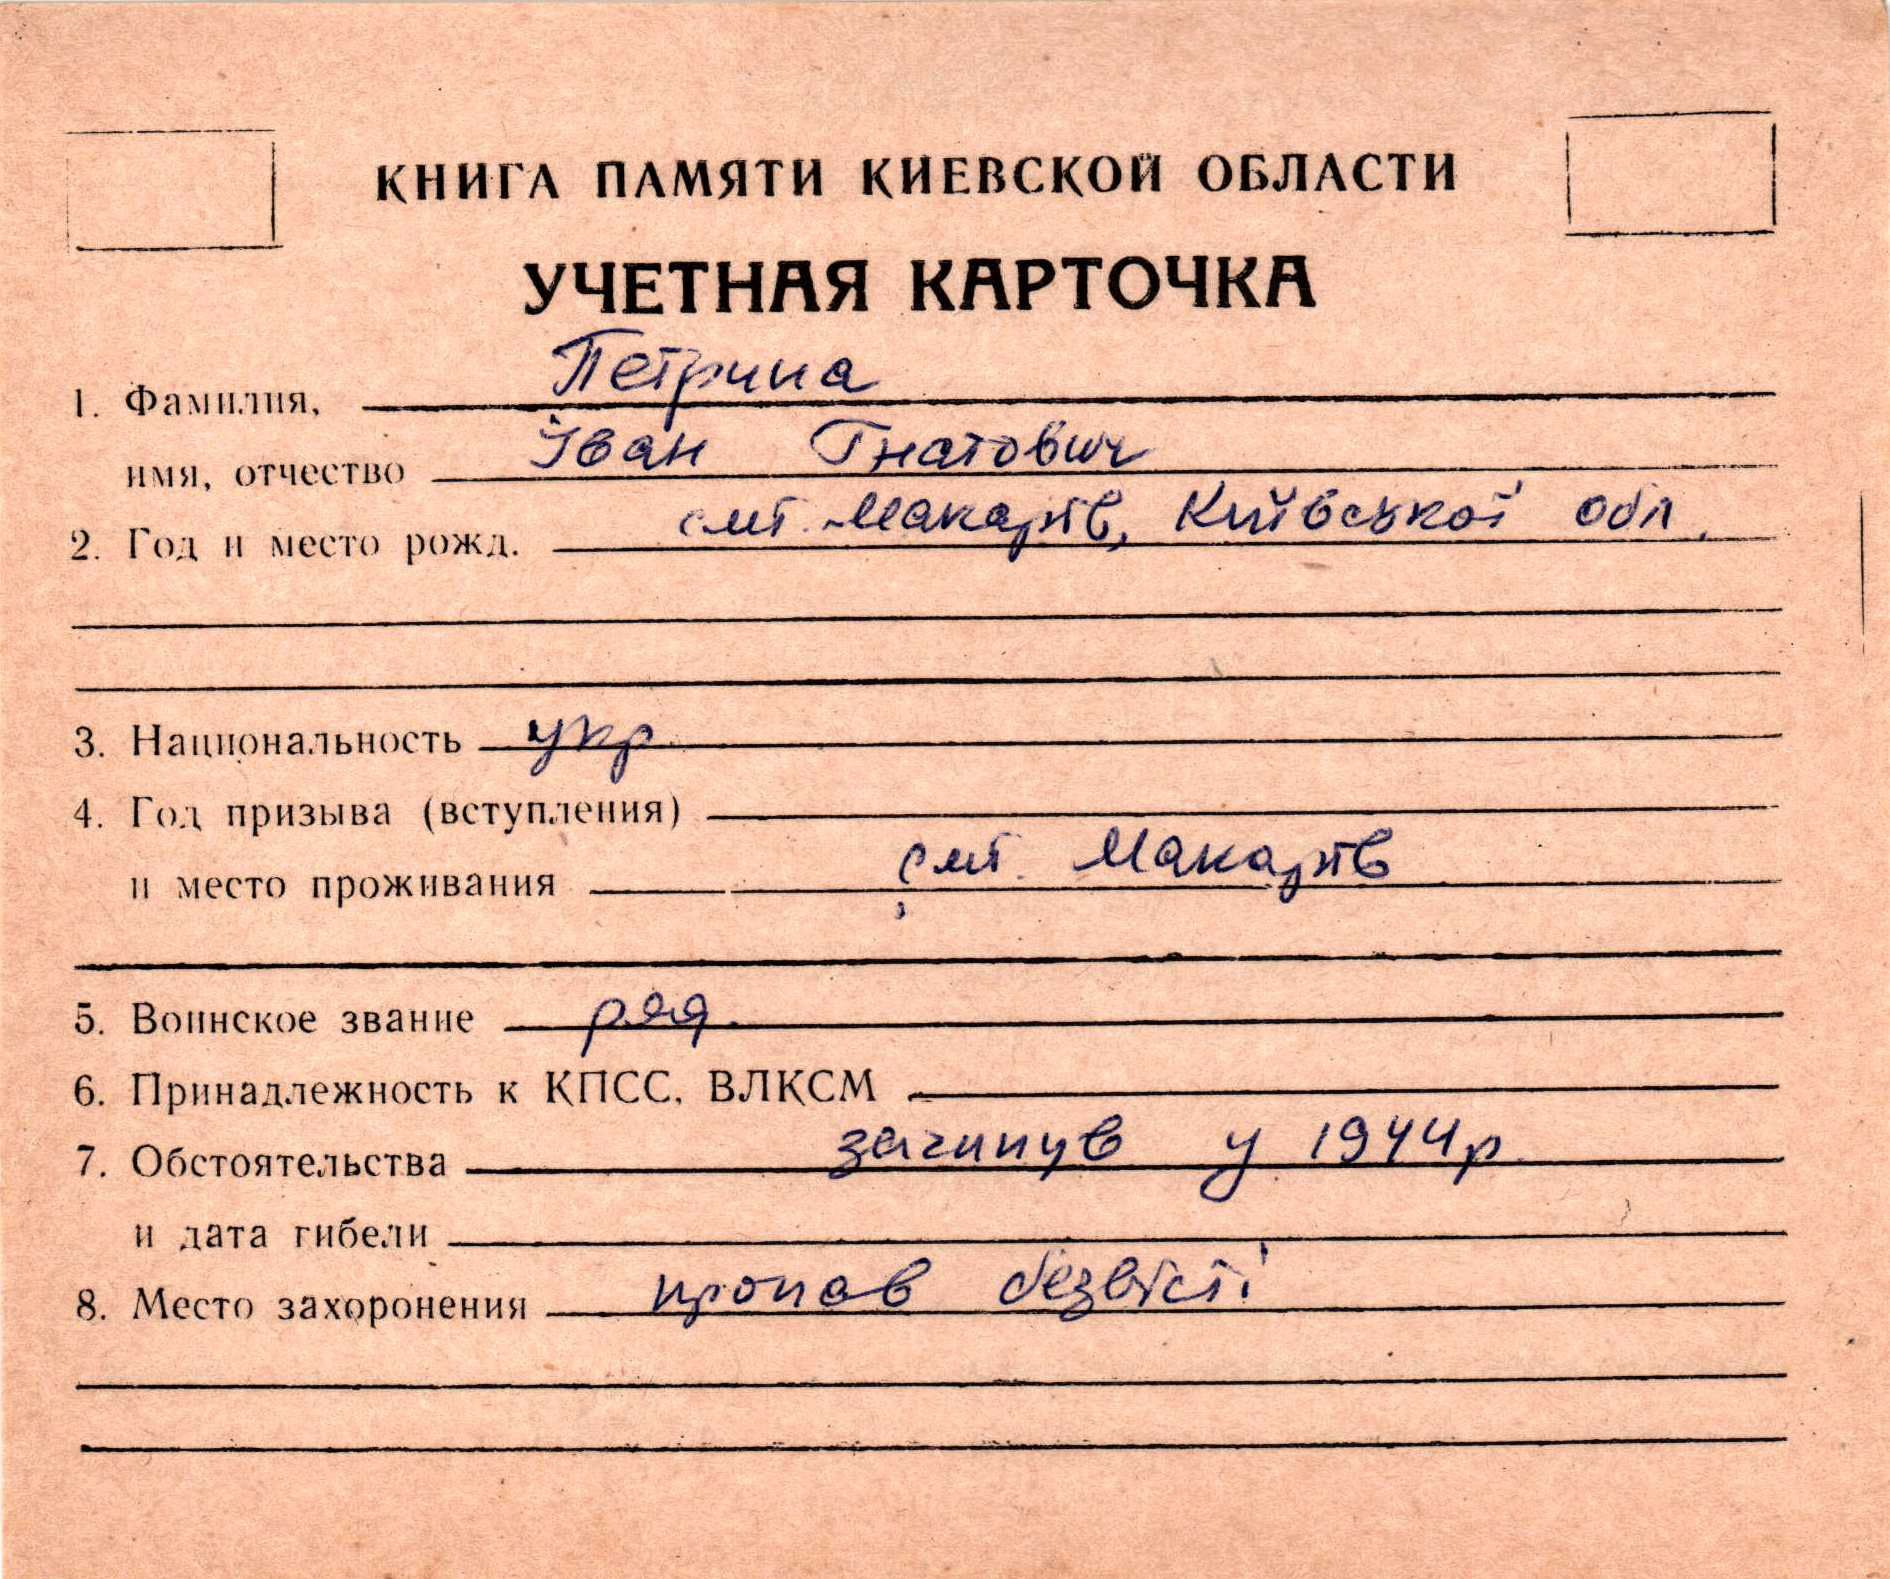 КНИГА ПАМЯТИ КИЕВСКОЙ ОБЛАСТИ
УЧЕТНАЯ КАРТОЧКА
1. Фамилия, Петрина
имя, отчество Іван Гнатович
2. Год и место рожд. смт. Макарів, Київської обл.
3. Национальность укр
4. Год призыва (вступления)
и место проживания смт. Макарів
5. Воинское звание ряд.
6. Принадлежность к КПСС, ВЛКСМ
7. Обстоятельства загинув у 1944р.
и дата гибели
8. Место захоронения пропав безвісті